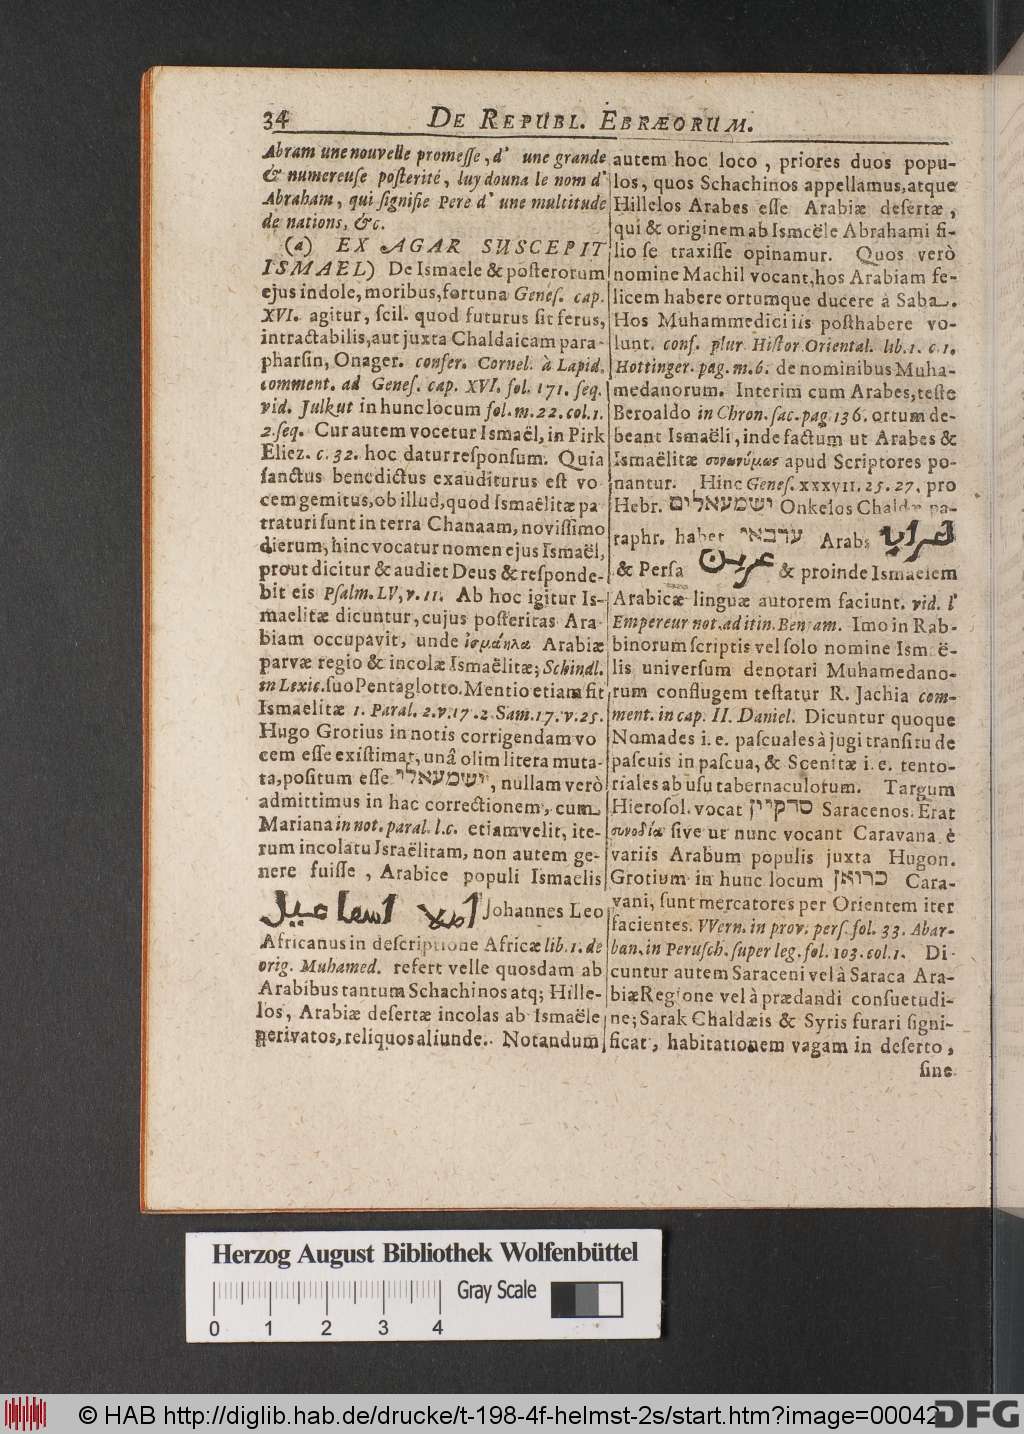 34 DE REPUBL. EBRÆORUM.
Abram une nouvelle promeſſe, d' une grande
& numereuſe poſterité, luy douna le nom d'
Abraham, qui ſignifie Pere d' une multitude
de nations, &c.
(a) EX AGAR SUSCEPIT
ISMAEL) De Ismaele & poſterorum
ejus indole, moribus, fortuna Geneſ. cap.
XVI. agitur, ſcil. quod futurus ſit ferus,
intractabilis, aut juxta Chaldaicam para-
pharſin, Onager. confer. Cornel. à Lapid.
comment. ad Geneſ. cap. XVI. fol. 171. ſeq.
vid. Julkut in hunc locum fol. m. 22. col. 1.
2. ſeq. Cur autem vocetur Ismaël, in Pirk
Eliez. c. 32. hoc datur reſponſum. Quia
ſanctus benedictus exauditurus eſt vo
cem gemitus, ob illud, quod Iſmaëlitæ pa
traturi ſunt in terra Chanaam, noviſſimo
dierum; hinc vocatur nomen ejus Ismaël,
prout dicitur & audiet Deus & reſponde-
bit eis Pſalm. LV, v. 11. Ab hoc igitur Is-
maelitæ dicuntur, cujus poſteritas Ara
biam occupavit, unde ἰσμάηλα Arabiæ
parvæ regio & incolæ Ismaëlitæ; Schindl.
in Lexic. ſuo Pentaglotto. Mentio etiam fit
Ismaelitæ 1. Paral. 2. v. 17. 2. Sam. 17. v. 25.
Hugo Grotius in notis corrigendam vo
cem eſſe exiſtimat, unâ olim litera muta-
ta, poſitum eſſe ישמעאלי, nullam verò
admittimus in hac correctionem, cum
Mariana in not. paral. l. c. etiam velit, ite-
rum incolatu Israëlitam, non autem ge-
nere fuiſſe, Arabice populi Ismaelis
اسماعيل Johannes Leo
Africanus in deſcriptione Africæ lib. 1. de
orig. Muhamed. refert velle quosdam ab
Arabibus tantum Schachinos atq; Hille-
los, Arabiæ deſertæ incolas ab Ismaële
derivatos, reliquos aliunde. Notandum
autem hoc loco, priores duos popu-
los, quos Schachinos appellamus, atque
Hillelos Arabes eſſe Arabiæ deſertæ,
qui & originem ab Ismcële Abrahami fi-
lio ſe traxiſſe opinamur. Quos verò
nomine Machil vocant, hos Arabiam fe-
licem habere ortumque ducere à Saba.
Hos Muhammedici iis poſthabere vo-
lunt. conf. plur Hiſtor. Oriental. lib. 1. c. 1.
Hottinger. pag. m. 6. de nominibus Muha-
medanorum. Interim cum Arabes, teſte
Beroaldo in Chron. ſac. pag 136. ortum de-
beant Ismaëli, inde factum ut Arabes &
Ismaëlitæ συνωνύμως apud Scriptores po-
nantur. Hinc Geneſ. XXXVII. 25. 27. pro
Hebr. ישמעאלים Onkelos Chaldæ pa-
raphr. habet ערבאי Arabs
& Perſa & proinde Ismaelem
Arabicæ linguæ autorem faciunt. vid. l'
Empereur not. ad itin. Benjam. Imo in Rab-
binorum ſcriptis vel ſolo nomine Ism ë-
lis univerſum denotari Muhamedano-
rum conflugem teſtatur R. Jachia com-
ment. in cap. II. Daniel. Dicuntur quoque
Nomades i. e. paſcuales à jugi tranſitu de
paſcuis in paſcua, & Scenitæ i. e. tento-
riales ab uſu tabernaculorum. Targum
Hieroſol. vocat סרקיין Saracenos. Erat
συνοδία ſive ut nunc vocant Caravana è
variis Arabum populis juxta Hugon.
Grotium in hunc locum כרואן Cara-
vani, ſunt mercatores per Orientem iter
facientes. VVern. in prov. perſ. fol. 33. Abar-
ban. in Peruſch. ſuper leg. fol. 103. col. 1. Di-
cuntur autem Saraceni vel à Saraca Ara-
biæ Regione vel à prædandi conſuetudi-
ne; Sarak Chaldæis & Syris furari ſigni-
ficat, habitationem vagam in deſerto,
ſine
Herzog August Bibliothek Wolfenbüttel
Gray Scale
0 1 2 3 4
© HAB http://diglib.hab.de/drucke/t-198-4f-helmst-2s/start.htm?image=00042
DFG